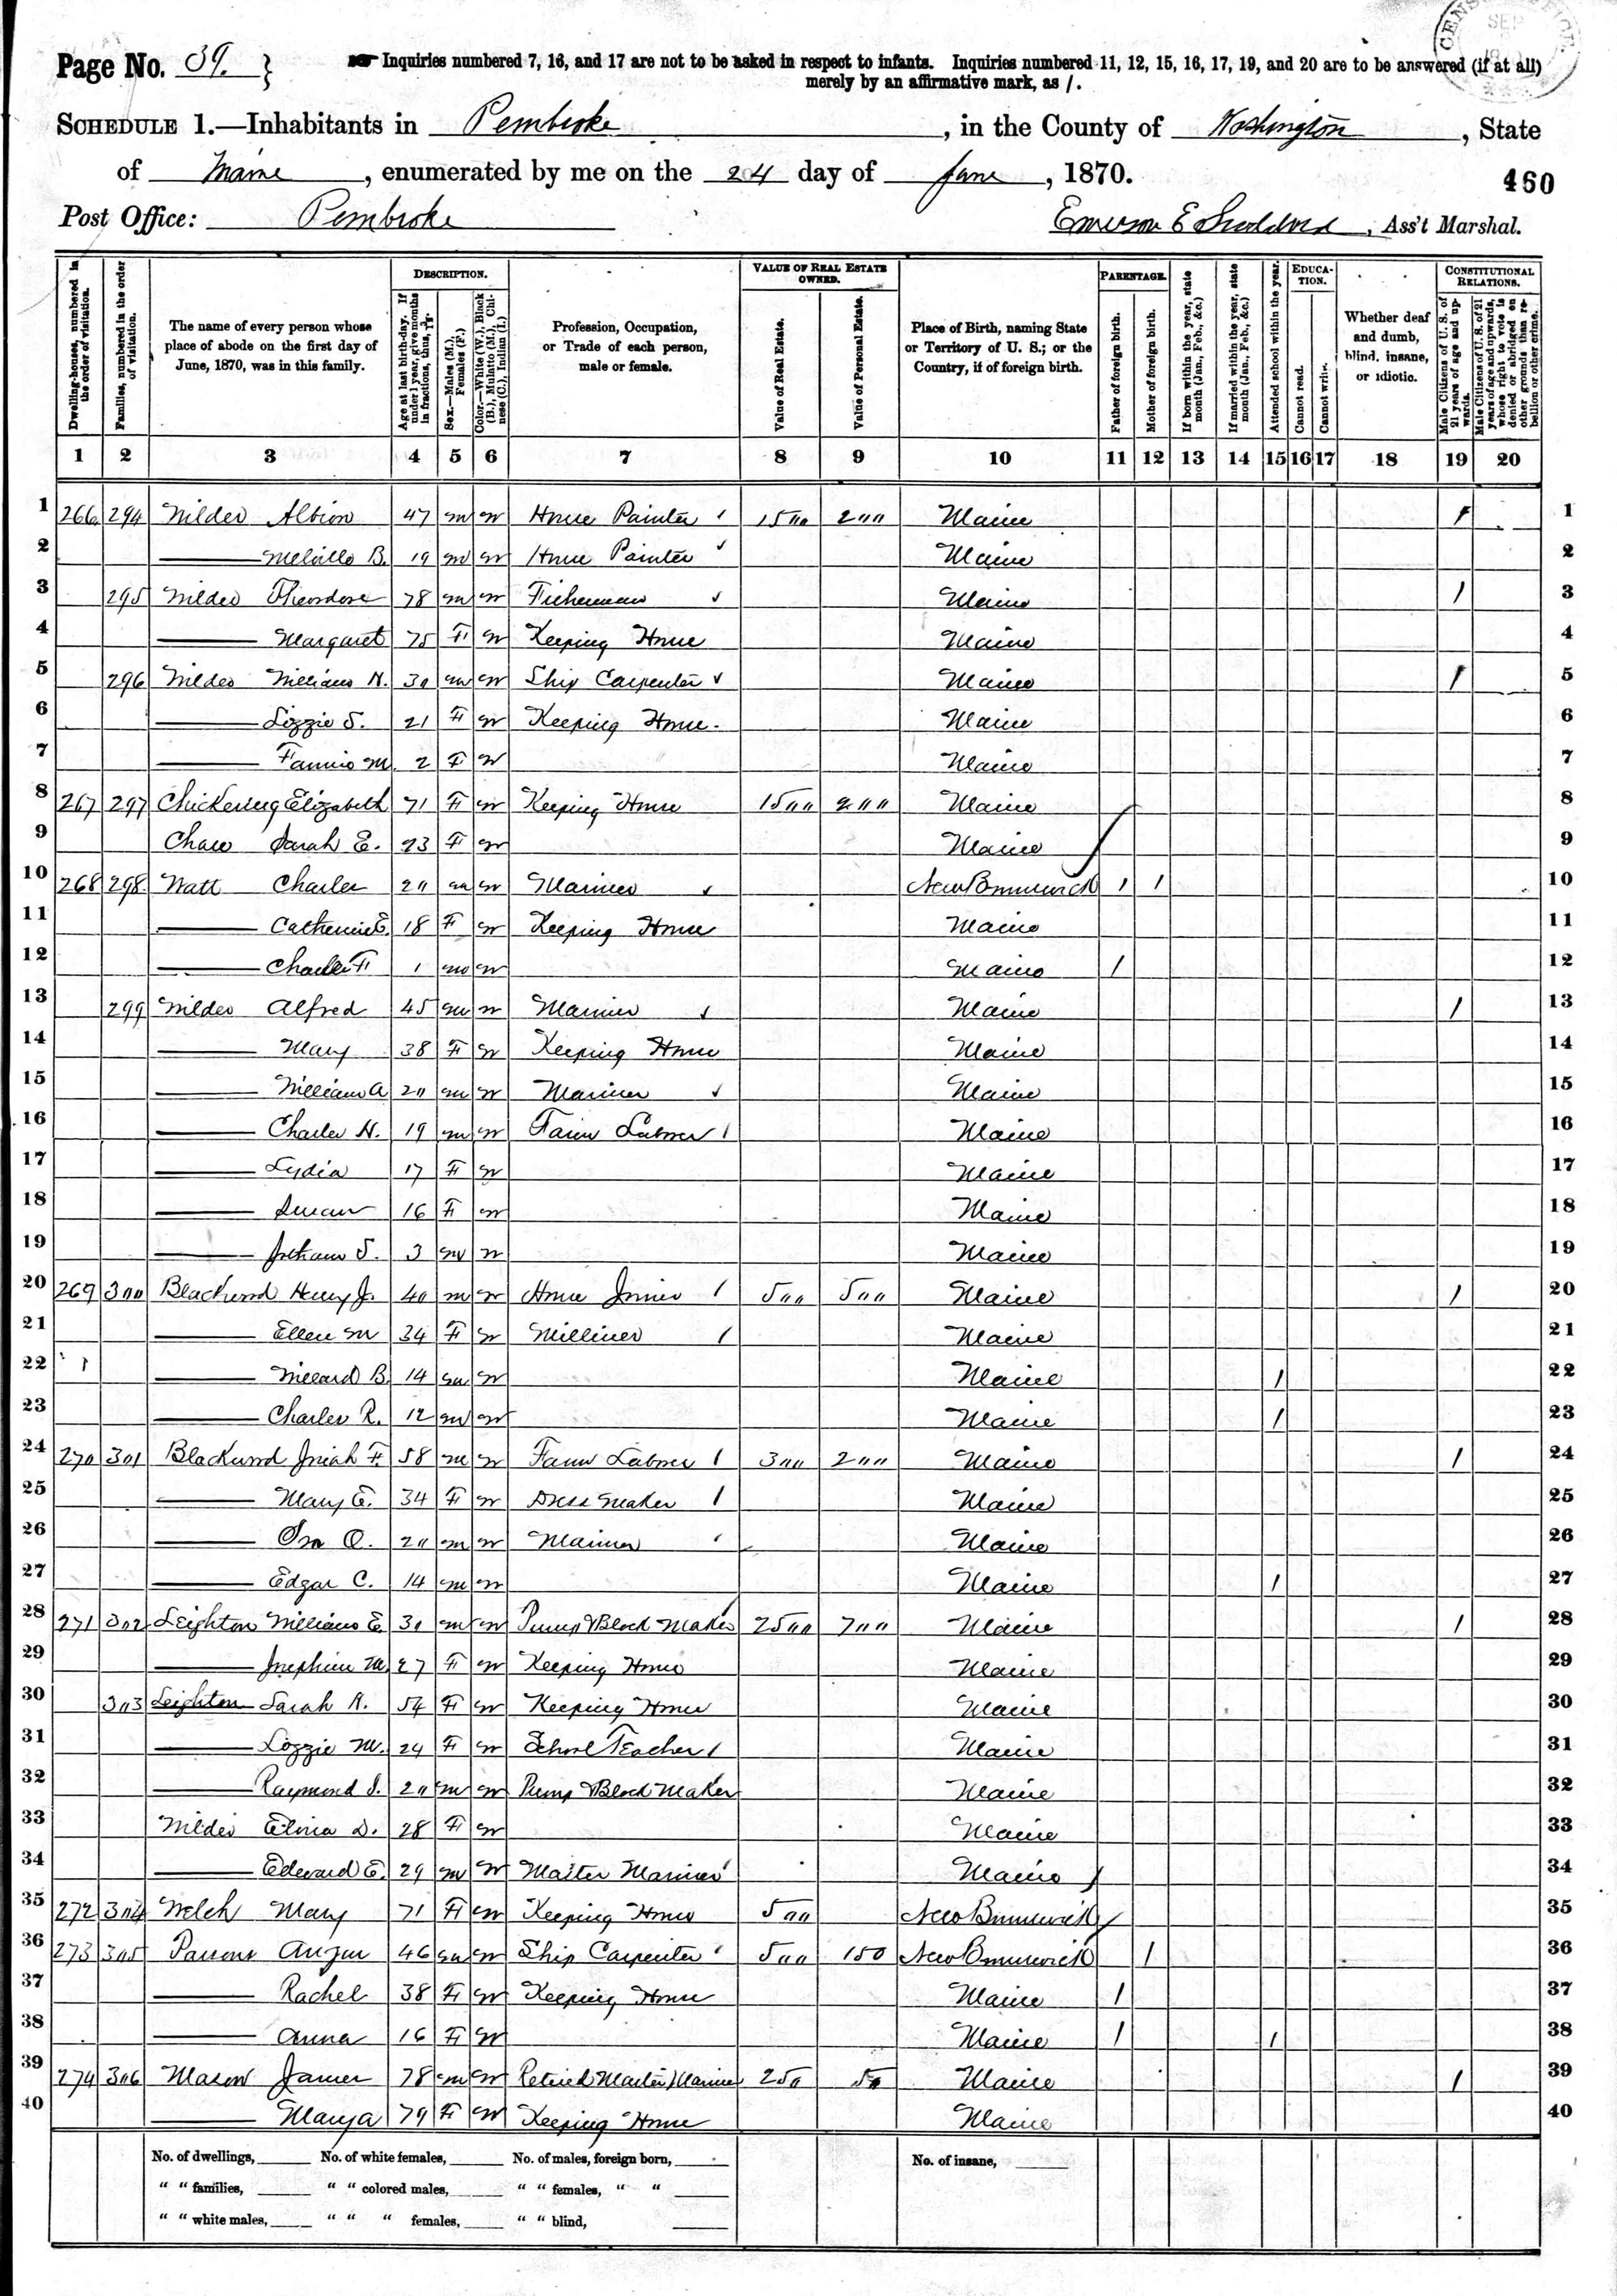 Page No. 39. }
Inquiries numbered 7, 16, and 17 are not to be asked in respect to infants. Inquiries numbered 11, 12, 15, 16, 17, 19, and 20 are to be answered (if at all)
merely by an affirmative mark, as /.
SCHEDULE 1.—Inhabitants in Pembroke, in the County of Washington, State
of Maine, enumerated by me on the 24 day of June, 1870.
460
Post Office: Pembroke
Emerson E , Ass't Marshal.
Dwelling-houses, numbered in the order of visitation.
Families, numbered in the order of visitation.
The name of every person whose place of abode on the first day of June, 1870, was in this family.
DESCRIPTION.
Age at last birth-day. If under 1 year, give months in fractions, thus,
Sex.—Males (M.), Females (F.)
Color.—White (W.), Black (B.), Mulatto (M.), Chinese (C.), Indian (I.)
Profession, Occupation, or Trade of each person, male or female.
VALUE OF REAL ESTATE OWNED.
Value of Real Estate.
Value of Personal Estate.
Place of Birth, naming State or Territory of U. S.; or the Country, if of foreign birth.
PARENTAGE.
Father of foreign birth.
Mother of foreign birth.
If born within the year, state month (Jan., Feb., &c.)
If married within the year, state month (Jan., Feb., &c.)
Attended school within the year.
EDUCATION.
Cannot read.
Cannot write.
Whether deaf and dumb, blind, insane, or idiotic.
CONSTITUTIONAL RELATIONS.
Male Citizens of U. S. of 21 years of age and upwards.
Male Citizens of U. S. of 21 years of age and upwards, whose right to vote is denied or abridged on other grounds than rebellion or other crime.
1 2 3 4 5 6 7 8 9 10 11 12 13 14 15 16 17 18 19 20
1 266 294 Wilder Albion 47 m w House Painter 1500 200 Maine / 1
2 —— Melville B. 19 m w House Painter Maine 2
3 295 Wilder Theodore 78 m w Fisherman Maine / 3
4 —— Margaret 75 F w Keeping House Maine 4
5 296 Wilder William H. 30 m w Ship Carpenter Maine / 5
6 —— Lizzie S. 21 F w Keeping House Maine 6
7 —— Fannie M. 2 F w Maine 7
8 267 297 Chickering Elizabeth 71 F w Keeping House 1500 200 Maine 8
9 Chase Sarah E. 23 F w Maine 9
10 268 298 Watt Charles 20 m w Mariner New Brunswick / / 10
11 —— Catherine E. 18 F w Keeping House Maine 11
12 —— Charles F. 1 m w Maine / 12
13 299 Wilder Alfred 45 m w Mariner Maine / 13
14 —— Mary 38 F w Keeping House Maine 14
15 —— William A 20 m w Mariner Maine 15
16 —— Charles H. 19 m w Farm Laborer Maine 16
17 —— Lydia 17 F w Maine 17
18 —— Susan 16 F w Maine 18
19 —— S. 3 m w Maine 19
20 269 300 Blackwood Henry J. 40 m w House Joiner 500 500 Maine / 20
21 —— Ellen M 34 F w Milliner Maine 21
22 —— Willard B. 14 m w Maine / 22
23 —— Charles R. 12 m w Maine / 23
24 270 301 Blackwood Josiah F. 58 m w Farm Laborer 300 200 Maine / 24
25 —— Mary E. 34 F w Dress Maker Maine 25
26 —— O. 20 m w Mariner Maine 26
27 —— Edgar C. 14 m w Maine / 27
28 271 302 Leighton William E. 30 m w Pump & Block Maker 2500 700 Maine / 28
29 —— Josephine M. 27 F w Keeping House Maine 29
30 303 Leighton Sarah A. 54 F w Keeping House Maine 30
31 —— Lizzie M. 24 F w School Teacher Maine 31
32 —— Raymond S. 20 m w Pump & Block Maker Maine 32
33 Wilder D. 28 F w Maine 33
34 —— Edward E. 29 m w Master Mariner Maine 34
35 272 304 Welch Mary 71 F w Keeping House 500 New Brunswick 35
36 273 305 Parsons 46 m w Ship Carpenter 500 150 New Brunswick / 36
37 —— Rachel 38 F w Keeping House Maine / 37
38 —— Anna 16 F w Maine / / 38
39 274 306 Mason James 78 m w Retired Master Mariner 250 50 Maine / 39
40 —— Mary A 79 F w Keeping House Maine 40
No. of dwellings, No. of white females, No. of males, foreign born, No. of insane,
" " families, " " colored males, " " females, " "
" " white males, " " " females, " " blind,